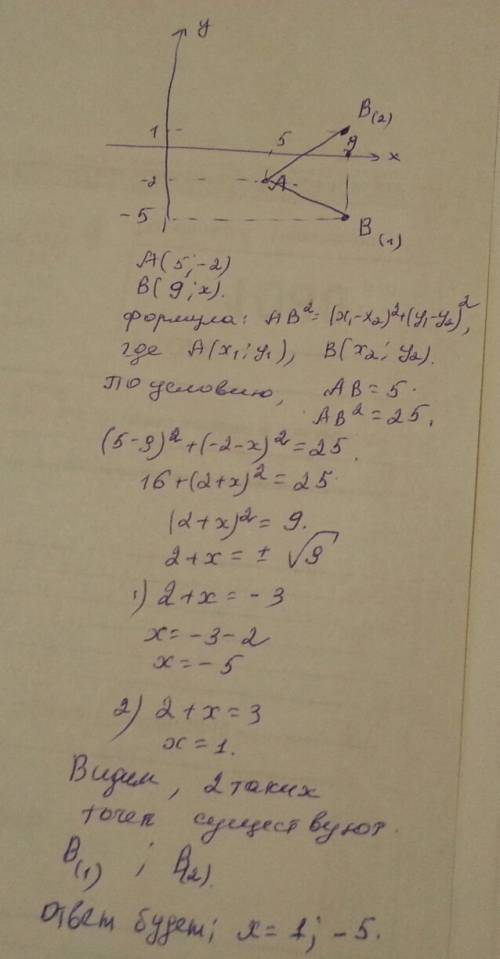 y
B(2)
1
5
9
x
-2
A
-5
B(1)
A(5;-2)
B(9;x).
формула: AB²=(x₁-x₂)²+(y₁-y₂)²,
где A(x₁;y₁), B(x₂;y₂).
По условию, AB=5.
AB²=25.
(5-9)²+(-2-x)²=25.
16+(2+x)²=25.
(2+x)²=9.
2+x=±√9
1) 2+x=-3
x=-3-2
x=-5
2) 2+x=3
x=1.
Видим, 2 таких
точек существуют.
B(1) ; B(2).
Ответ будет; x=1; -5.